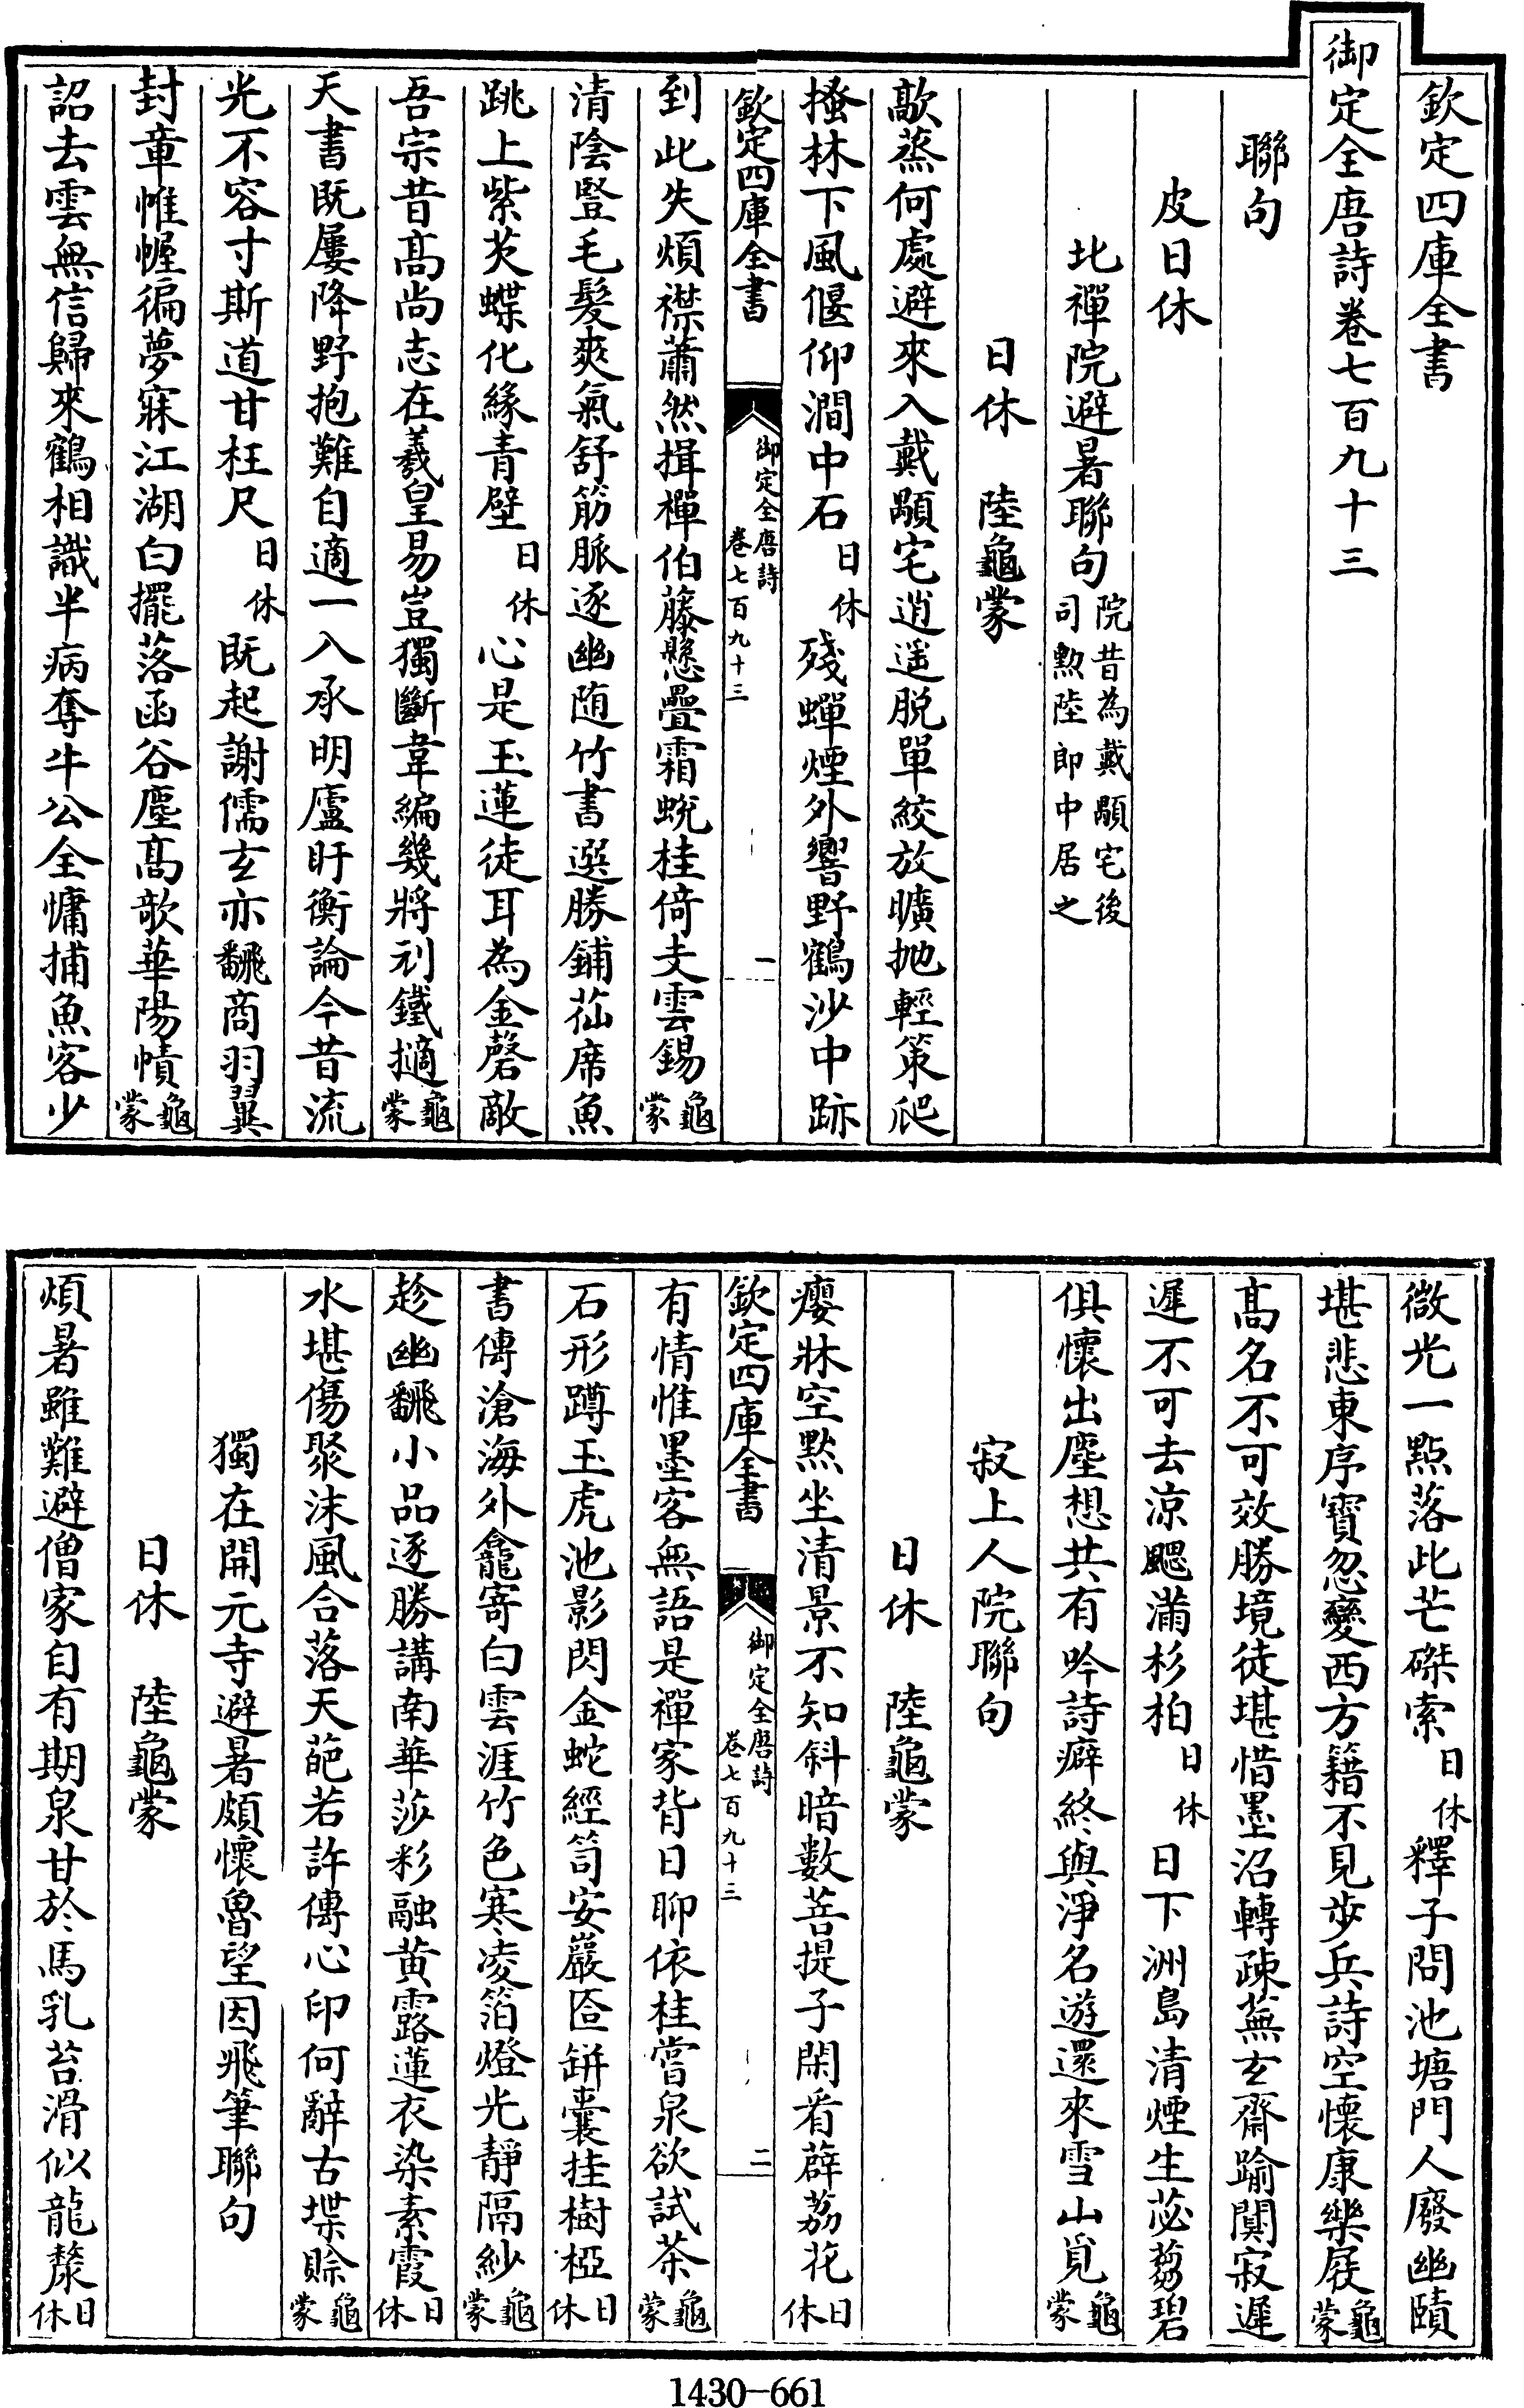 欽定四庫全書
御定全唐詩卷七百九十三
聯句
皮日休
北禪院避暑聯句院昔為戴顒宅後司勲陸郎中居之
日休 陸龜蒙
歊蒸何處避來入戴顒宅逍遥脱單絞放曠抛輕策爬
搔林下風偃仰澗中石日休殘蟬煙外響野鶴沙中跡
欽定四庫全書 御定全唐詩卷七百九十三 一
到此失煩襟蕭然揖禪伯藤懸疊霜蛻桂倚支雲錫龜蒙
清陰豎毛髮爽氣舒筋脈逐幽随竹書選勝鋪菰席魚
跳上紫芡蝶化緣青壁日休心是玉蓮徒耳為金磬敵
吾宗昔髙尚志在羲皇易豈獨斷韋編幾將刓鐵擿龜蒙
天書既屢降野抱難自適一入承明廬盱衡論今昔流
光不容寸斯道甘枉尺日休既起謝儒玄亦翻商羽翼
封章帷幄徧夢寐江湖白擺落函谷塵髙歌華陽幘龜蒙
詔去雲無信歸來鶴相識半病奪牛公全慵捕魚客少
微光一點落此芒磔索日休釋子問池塘門人廢幽賾
堪悲東序寳忽變西方籍不見步兵詩空懷康樂屐龜蒙
髙名不可效勝境徒堪惜墨沼轉疎蕪玄齋踰闃寂遲
遲不可去涼颸滿杉柏日休日下洲島清煙生苾蒭碧
俱懷出塵想共有吟詩癖終與淨名遊還來雪山覓龜蒙
寂上人院聯句
日休 陸龜蒙
癭牀空黙坐清景不知斜暗數菩提子閑看薜荔花日休
欽定四庫全書 御定全唐詩卷七百九十三 二
有情惟墨客無語是禪家背日聊依桂嘗泉欲試茶龜蒙
石形蹲玉虎池影閃金蛇經笥安巖匼缾囊挂樹椏日休
書傳滄海外龕寄白雲涯竹色寒凌箔燈光靜隔紗龜蒙
趁幽翻小品逐勝講南華莎彩融黄露蓮衣染素霞日休
水堪傷聚沫風合落天葩若許傳心印何辭古堞賒龜蒙
獨在開元寺避暑頗懷魯望因飛筆聯句
日休 陸龜蒙
煩暑雖難避僧家自有期泉甘於馬乳苔滑似龍漦日休
1430-661